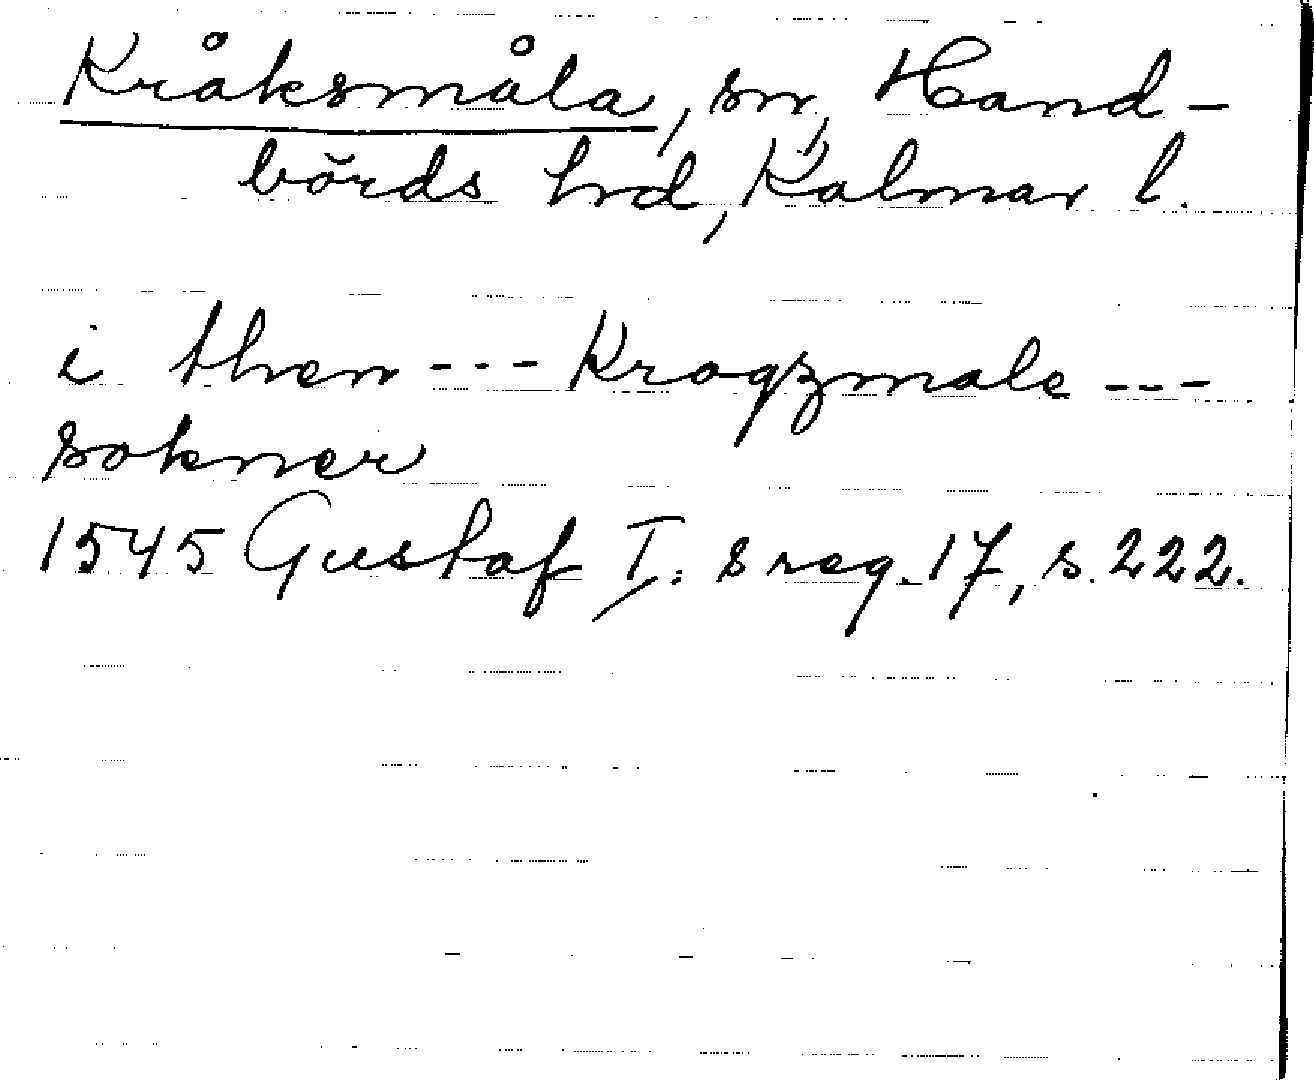 Kråksmåla, sn, Hand-
börds hrd, Kalmar l.
i then --- Kragzmale ---
sokner
1545 Gustaf I:s reg. 17, s. 222.